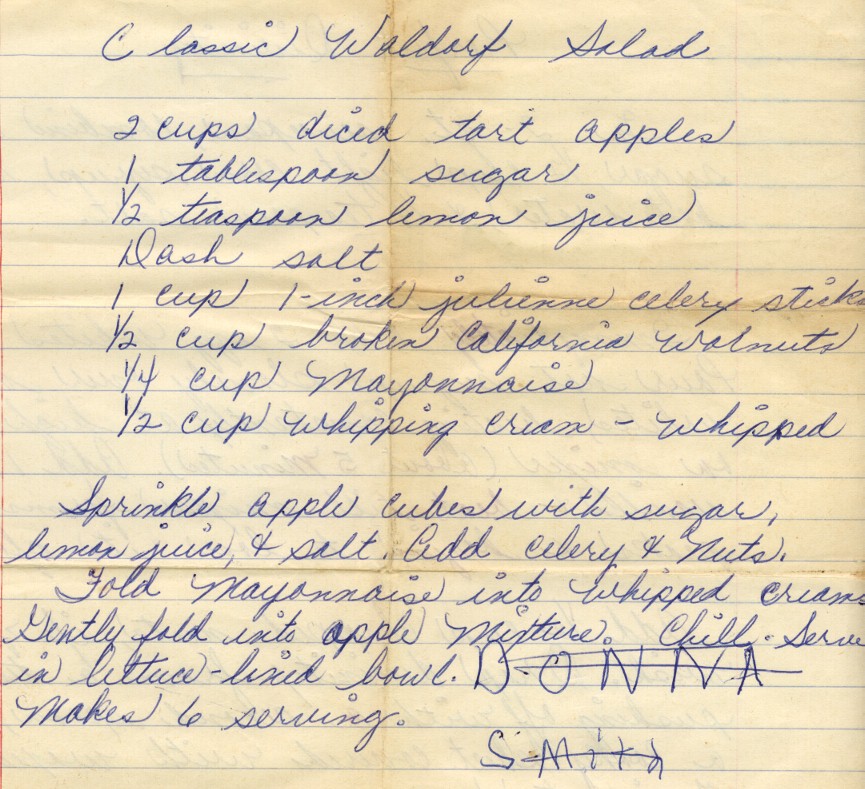 Classic Waldorf Salad
2 cups diced tart apples
1 tablespoon sugar
1/2 teaspoon lemon juice
Dash salt
1 cup 1-inch julienne celery sticks
1/2 cup broken California Walnuts
1/4 cup Mayonnaise
1/2 cup whipping cream - whipped
Sprinkle apple cubes with sugar,
lemon juice, & salt. Add celery & Nuts.
Fold Mayonnaise into whipped cream
Gently fold into apple Mixture. Chill. Serve
in lettuce-lined bowl. DONNA
Makes 6 serving.
SMith